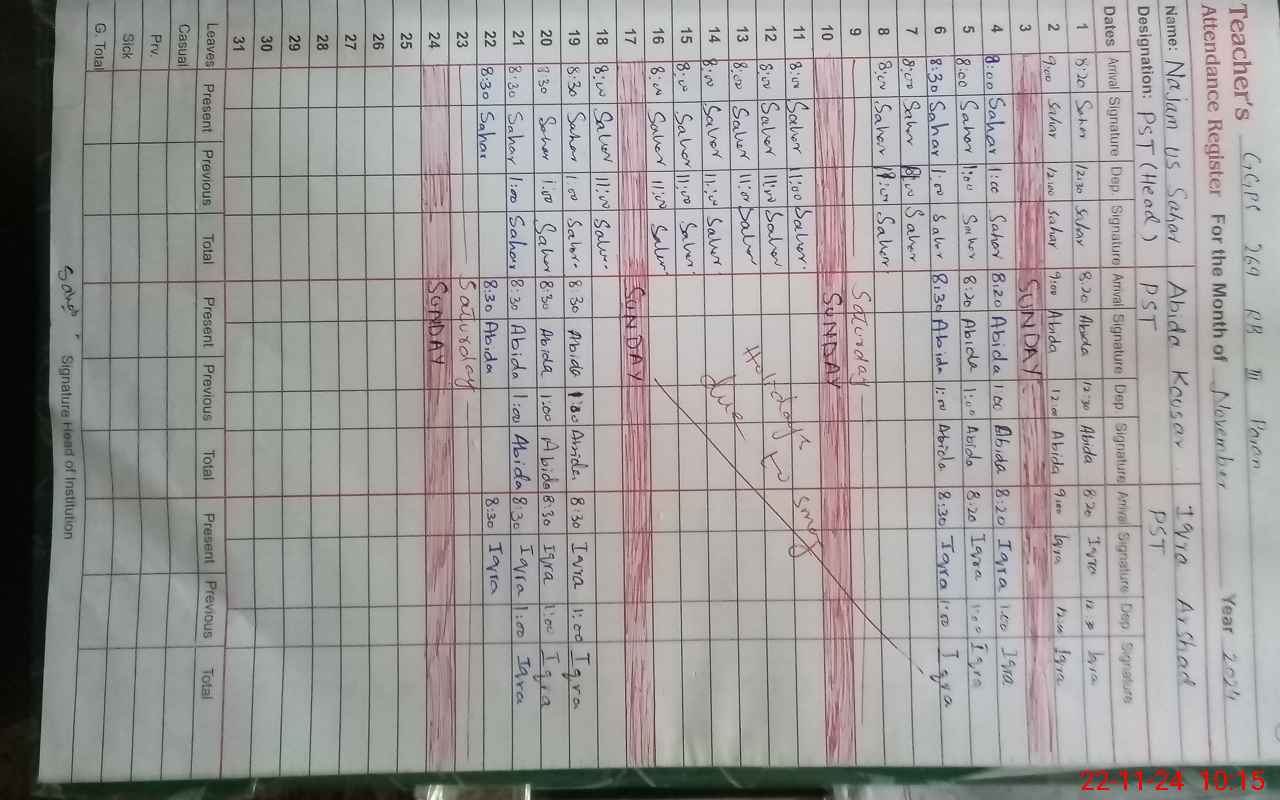 Teacher's GGPS 269 RB III
Attendance Register For the Month of November Year 2024
Name: Najam us Sahar Abida Kousar Iqra Arshad
Designation: PST (Head) PST PST
Dates Arrival Signature Dep. Signature Arrival Signature Dep Signature Arrival Signature Dep Signature
1 8:20 Sahar 12:30 Sahar 8:20 Abida 12:30 Abida 8:20 Iqra 12:30 Iqra
2 9:00 Sahar 12:00 Sahar 9:00 Abida 12:00 Abida 9:00 Iqra 12:00 Iqra
3 SUNDAY
4 8:00 Sahar 1:00 Sahar 8:20 Abida 1:00 Abida 8:20 Iqra 1:00 Iqra
5 8:00 Sahar 1:00 Sahar 8:20 Abida 1:00 Abida 8:20 Iqra 1:00 Iqra
6 8:30 Sahar 1:00 Sahar 8:30 Abida 1:00 Abida 8:30 Iqra 1:00 Iqra
7 8:00 Sahar Sahar
8 8:00 Sahar Sahar
9 Saturday
10 SUNDAY
11 8:00 Sahar 11:00 Sahar smog
12 8:00 Sahar 11:00 Sahar Holidays to
13 8:00 Sahar 11:00 Sahar
14 8:00 Sahar 11:00 Sahar due
15 8:00 Sahar 11:00 Sahar
16 8:00 Sahar 11:00 Sahar
17 SUNDAY
18 8:00 Sahar 11:00 Sahar
19 8:30 Sahar 1:00 Sahar 8:30 Abida 1:00 Abida 8:30 Iqra 1:00 Iqra
20 8:30 Sahar 1:00 Sahar 8:30 Abida 1:00 Abida 8:30 Iqra 1:00 Iqra
21 8:30 Sahar 1:00 Sahar 8:30 Abida 1:00 Abida 8:30 Iqra 1:00 Iqra
22 8:30 Sahar 8:30 Abida 8:30 Iqra
23 Saturday
24 SUNDAY
25
26
27
28
29
30
31
Leaves Present Previous Total Present Previous Total Present Previous Total
Casual
Prv.
Sick
G. Total
Sahar Signature Head of Institution
22-11-24 10:15